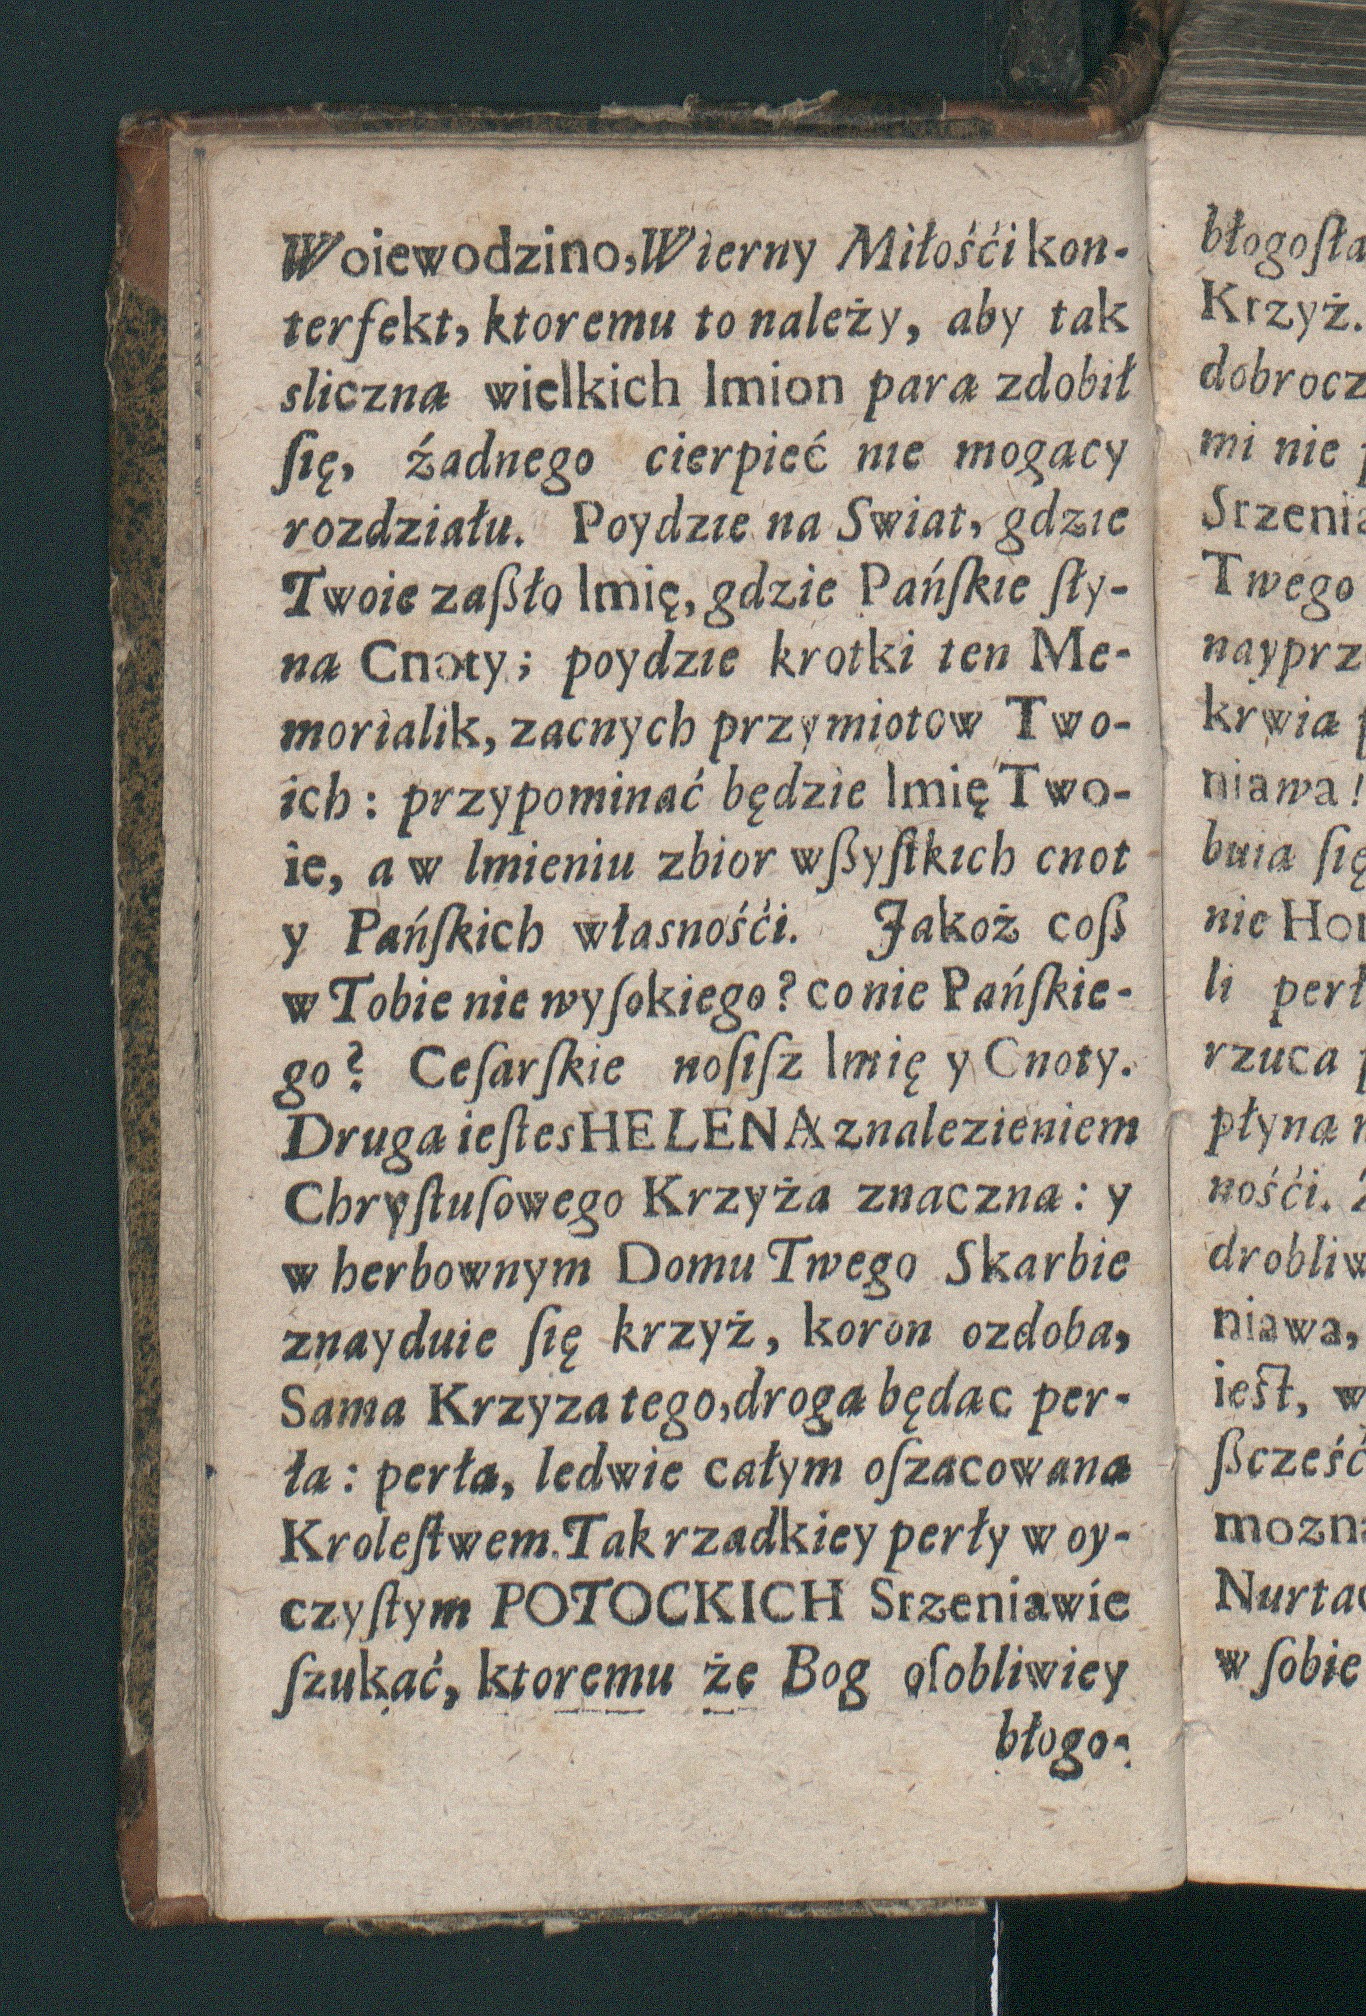 Woiewodzino, Wierny Miłośći kon-
terfekt, ktoremu to należy, aby tak
sliczna wielkich Imion para zdobił
ſię, źadnego cierpieć nie mogacy
rozdziału. Poydzie na Swiat, gdzie
Twoie zaßło Imię, gdzie Pańſkie ſły-
na Cnoty; poydzie krotki ten Me-
morialik, zacnych przymiotow Two-
ich: przypominać będzie Imię Two-
ie, a w Imieniu zbior wßyſtkich cnot
y Pańſkich własnośći. Jakoż coß
w Tobie nie wyſokiego? co nie Pańſkie-
go? Ceſarſkie noſiſz Imię y Cnoty.
Druga ieſtes HELENA znalezieniem
Chryſtuſowego Krzyża znaczna: y
w herbownym Domu Twego Skarbie
znayduie ſię krzyż, koron ozdoba,
Sama Krzyza tego, droga będac per-
ła: perła, ledwie całym oſzacowana
Kroleſtwem. Tak rzadkiey perły w oy-
czyſtym POTOCKICH Srzeniawie
ſzukać, ktoremu że Bog oſobliwiey
błogo-
błogoſła
Krzyż.
dobrocz
mi nie
Srzenia
Twego
nayprz
krwia
niawa!
buia ſię
nie Hon
li perł
rzuca
płyna
nośći.
drobliw
niawa,
ieſt, w
ßcześć
mozna
Nurtac
w ſobie